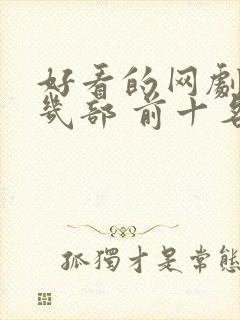 好看的网劇
幾部 前十名
孤獨才是常態